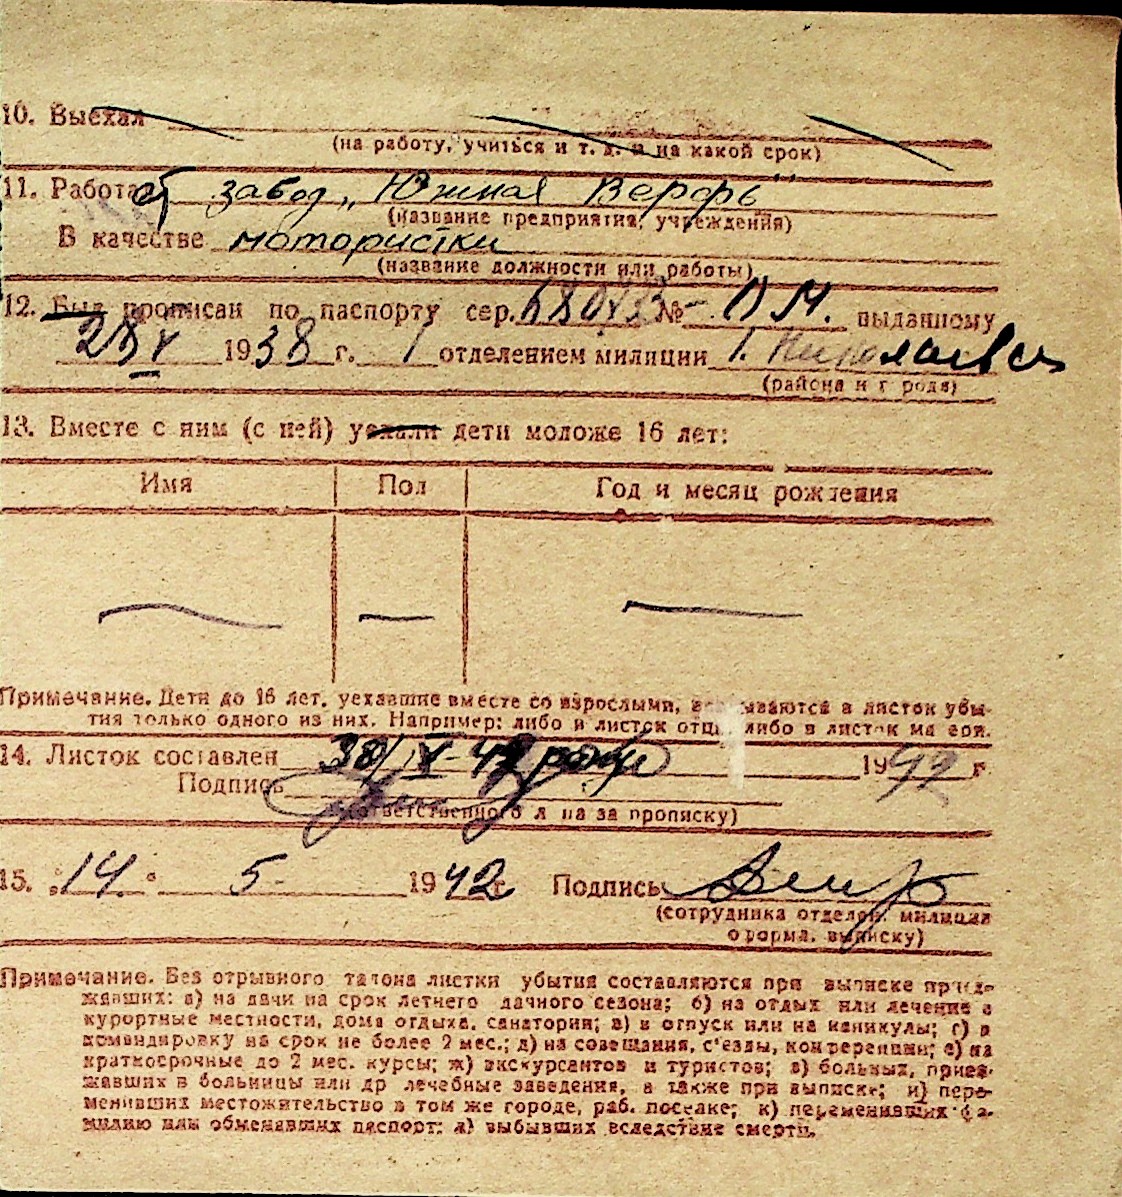 10. Выехал
(на работу, учиться и т. д. и на какой срок)
11. Работает завод „Южная Верфь"
(название предприятия, учреждения)
В качестве мотористки
(название должности или работы)
12. Был прописан по паспорту сер. № - ПМ. выданному
1938 г. 1 отделением милиции г. Николаева
(района и города)
13. Вместе с ним (с ней) уехали дети моложе 16 лет:
Имя Пол Год и месяц рождения
— — —
Примечание. Дети до 16 лет, уехавшие вместе со взрослыми, вписываются в листок убы-
тия только одного из них. Например: либо в листок отца, либо в листок матери.
14. Листок составлен 1942 г.
Подпись
(ответственного л на за прописку)
15. „14." 5- 1942 г. Подпись
(сотрудника отделен. милиции
оформ. выписку)
Примечание. Без отрывного талона листки убытия составляются при выписке приез-
жавших: а) на дачи на срок летнего дачного сезона; б) на отдых или лечение в
курортные местности, дома отдыха, санатории; в) в отпуск или на каникулы; г) в
командировку на срок не более 2 мес.; д) на совещания, с'езды, конференции; е) на
краткосрочные до 2 мес. курсы; ж) экскурсантов и туристов; з) больных, приез-
жавших в больницы или др лечебные заведения, а также при выписке; и) пере-
менивших местожительство в том же городе, раб. поселке; к) переменивших фа-
милию или обменявших паспорт; л) выбывших вследствие смерти.